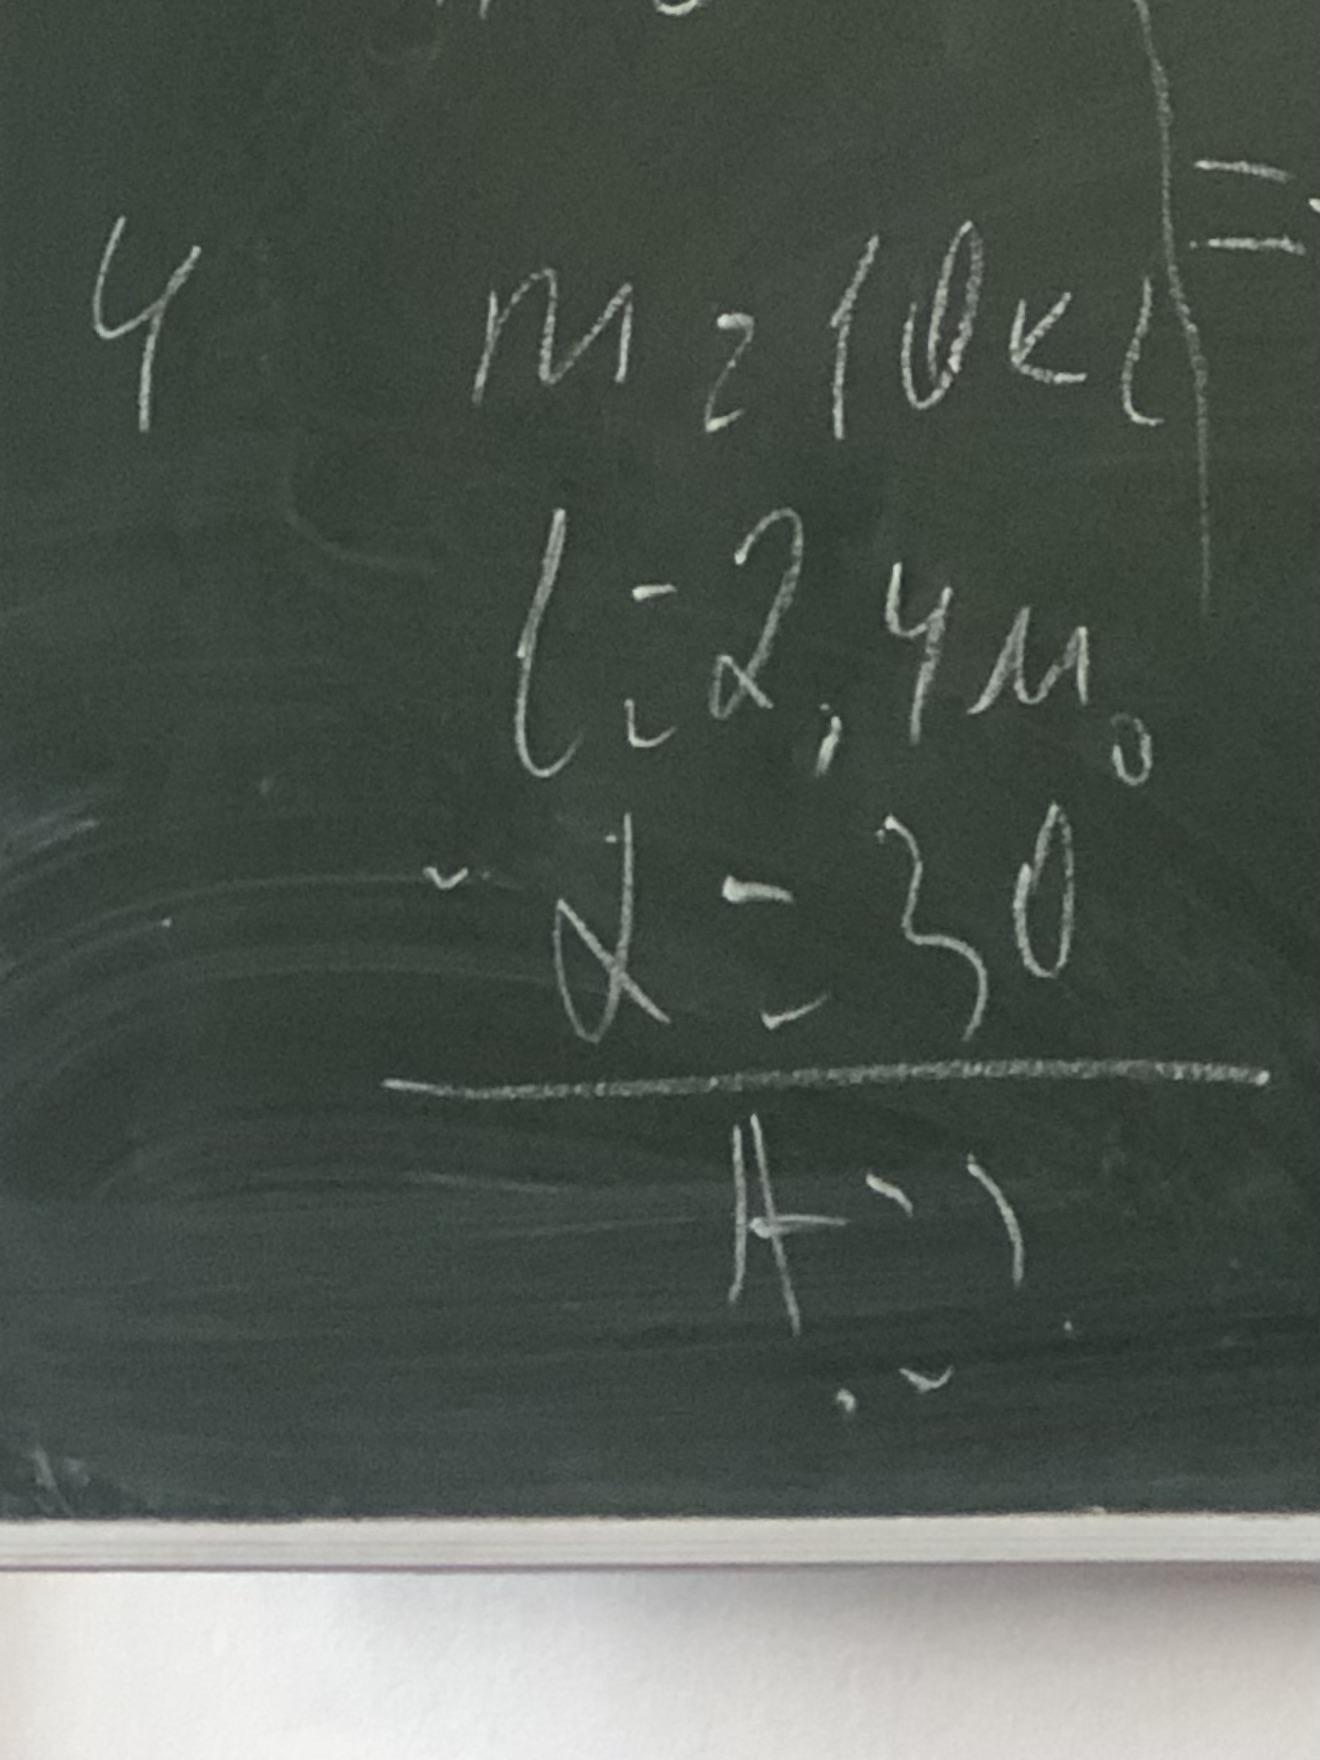 4 m = 10 кг
l = 2,4 м
α = 30°
A = ?